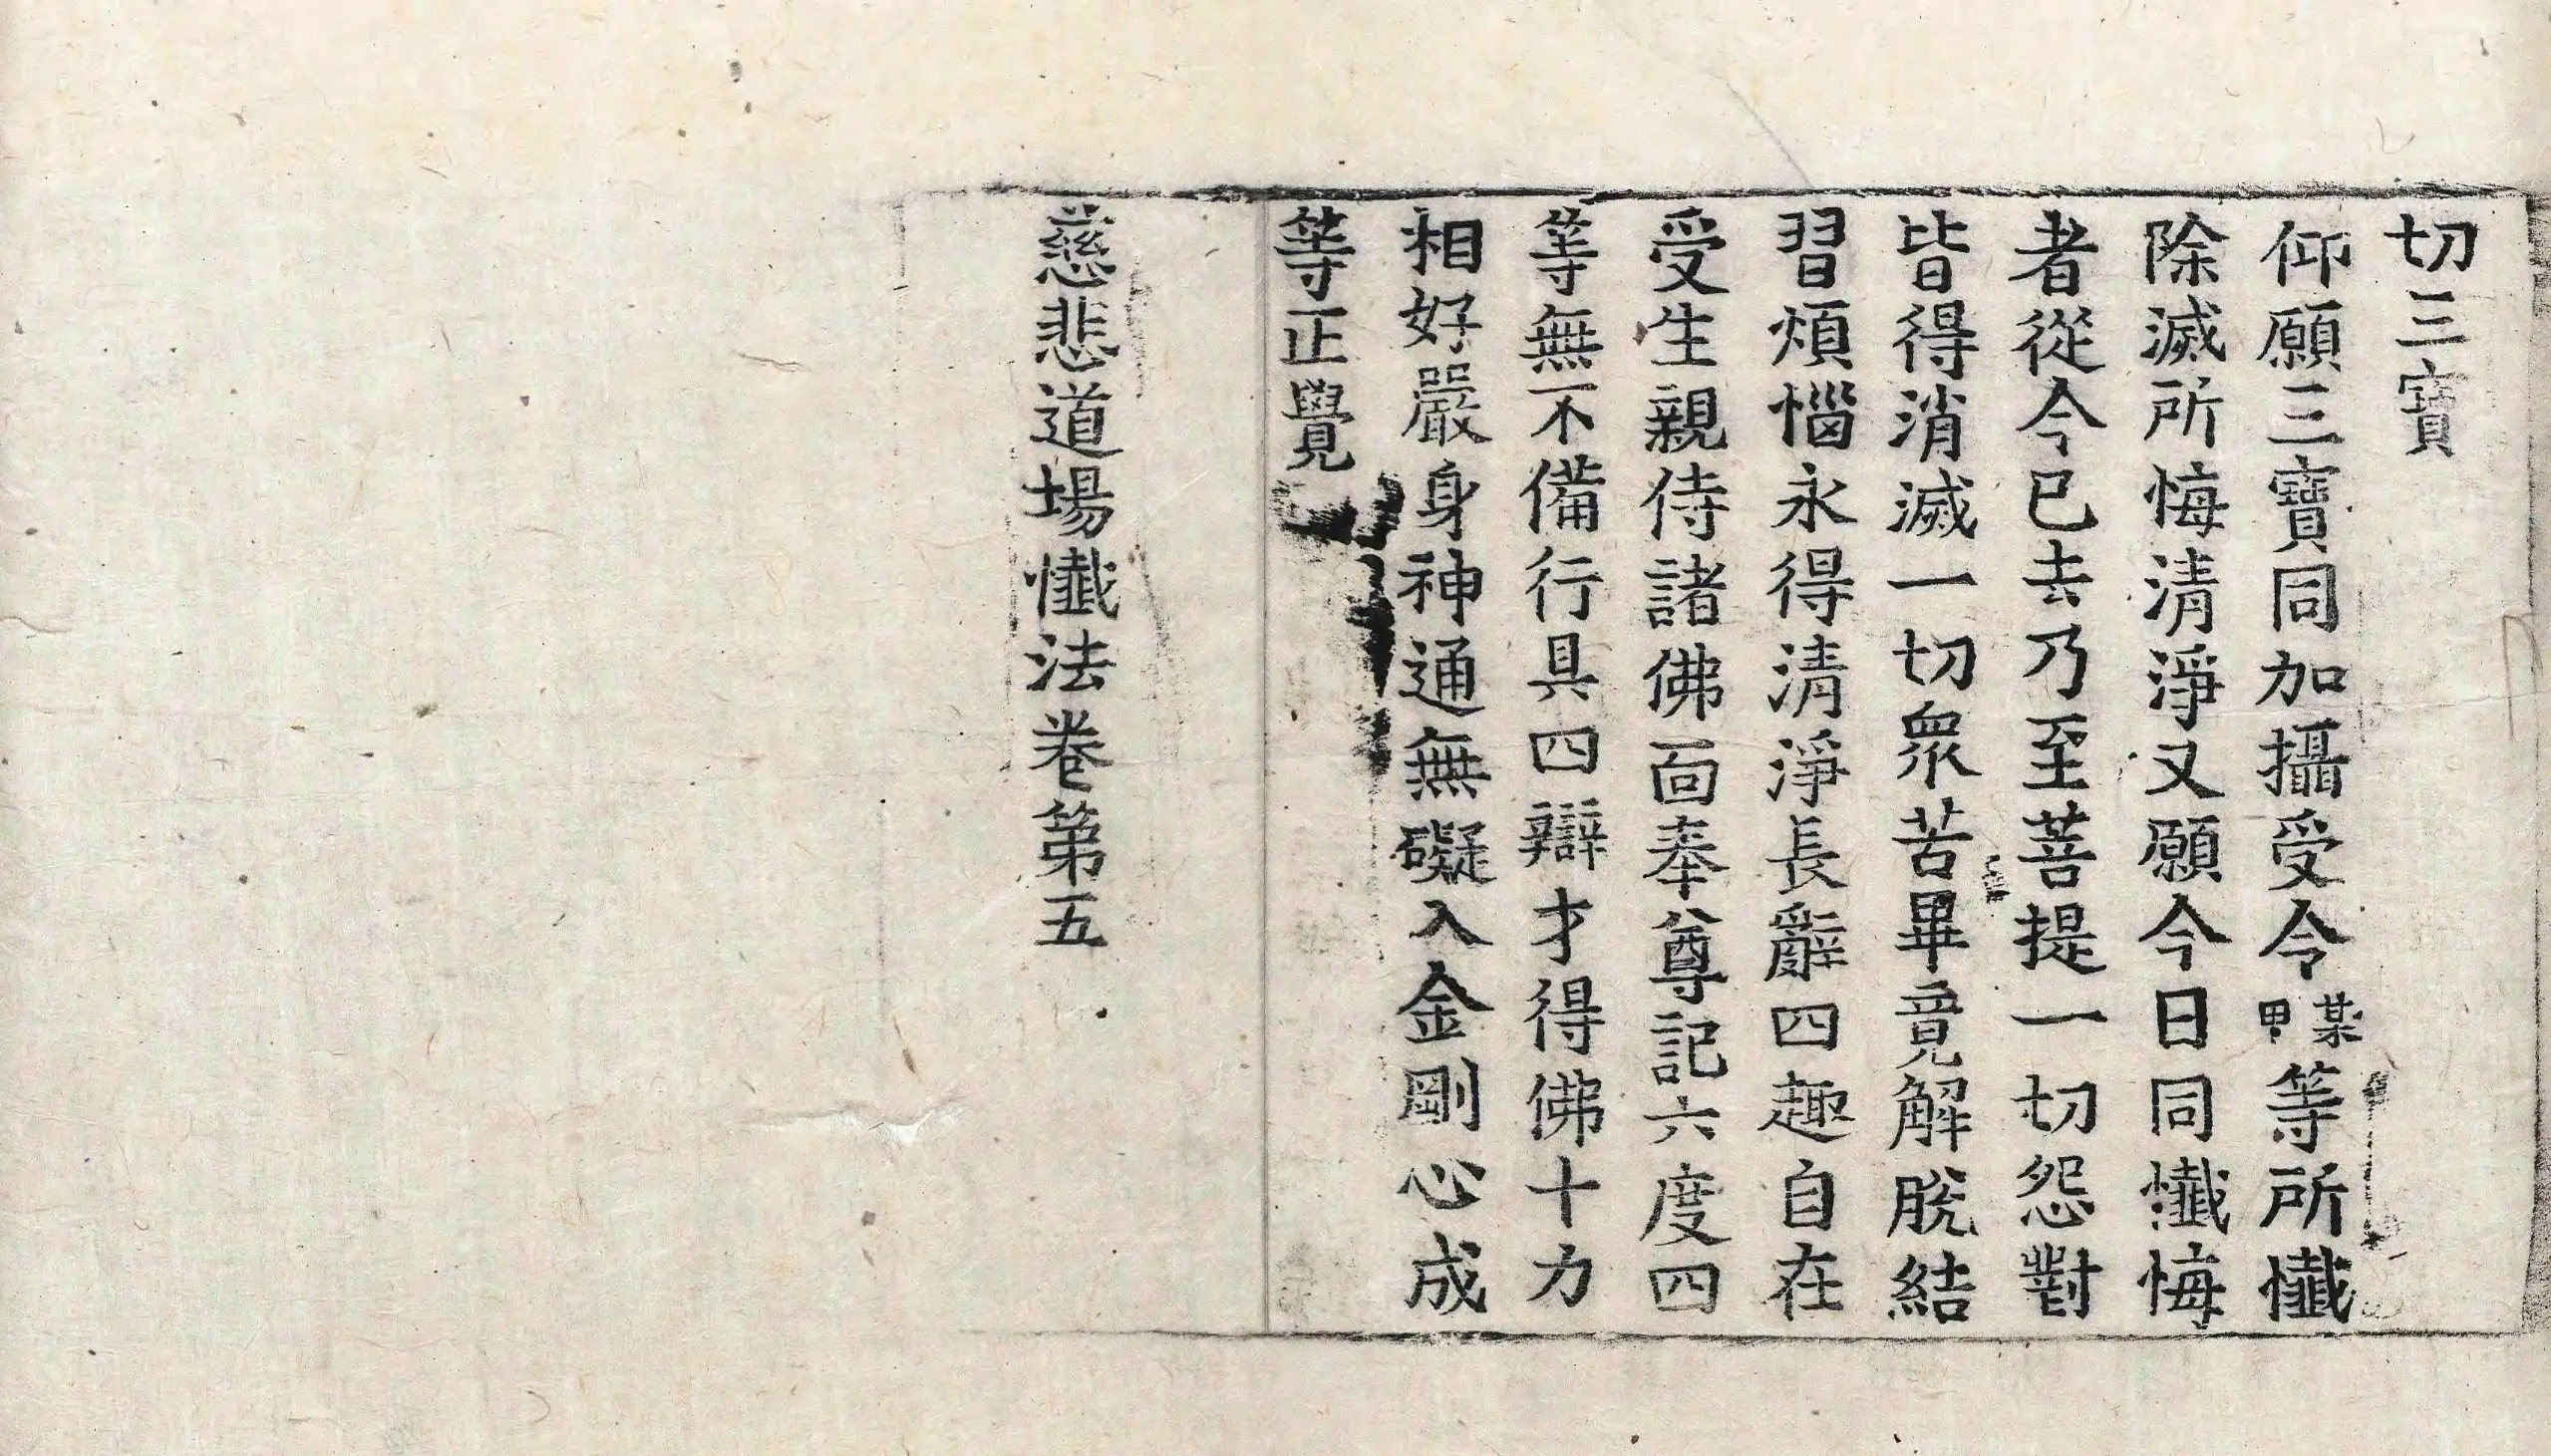 切三寶
仰願三寶同加攝受令某甲等所懺
除滅所悔清淨又願今日同懺悔
者從今已去乃至菩提一切怨對
皆得消滅一切眾苦畢竟解脫結
習煩惱永得清淨長辭四趣自在
受生親侍諸佛面奉尊記六度四
等無不備行具四辯才得佛十力
相好嚴身神通無礙入金剛心成
等正覺
慈悲道場懺法卷第五